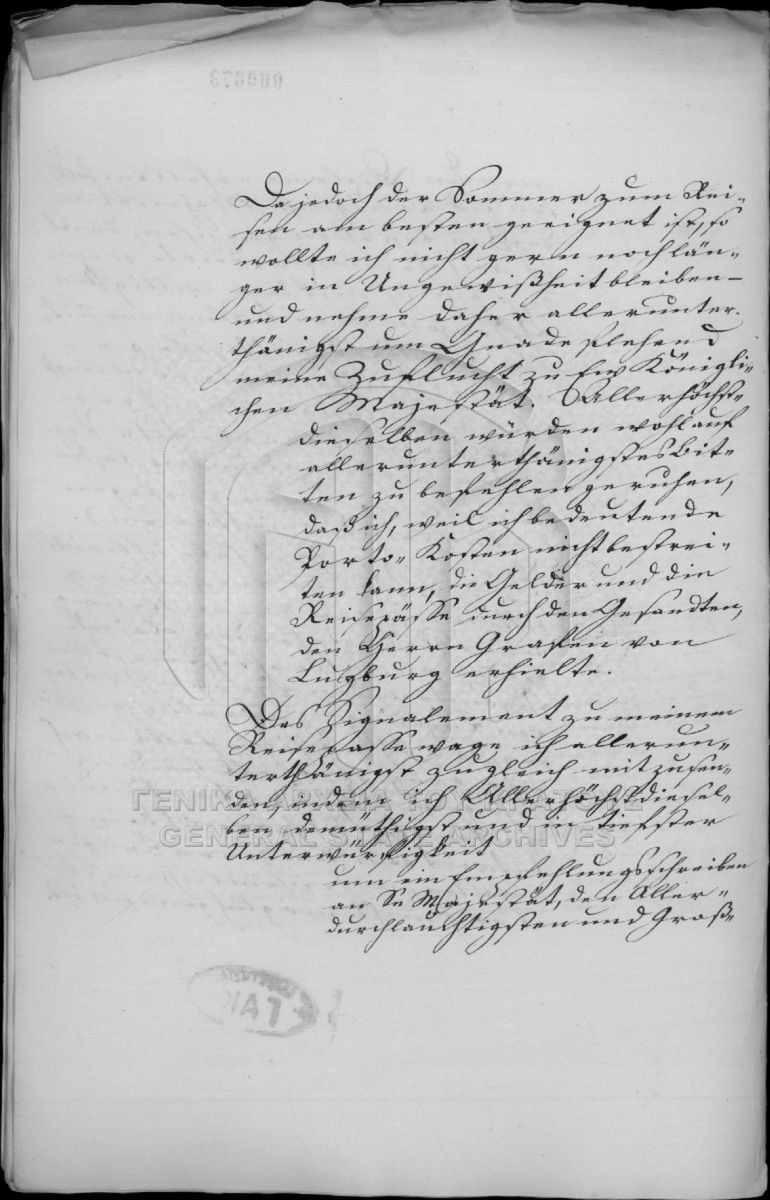 Da jedoch der Sommer zum Rei-
sen am besten geeignet ist, so
wollte ich nicht gern noch län-
ger in Ungewißheit bleiben –
und nehme daher allerunter-
thänigst um Gnade flehend
meine Zuflucht zu Ew Königli-
chen Majestät. Allerhöchst-
dieselben würden wohl auf
allerunterthänigstes Bit-
ten zu befehlen geruhen,
daß ich, weil ich bedeutende
Porto-Kosten nicht bestrei-
ten kann, die Gelder und die
Reisepässe durch den Gesandten,
den Herrn Grafen von
Luxburg erhielte.
Das Signalement zu meinem
Reisepasse wage ich allerun-
terthänigst zugleich mitzusen-
den, indem ich Allerhöchstdiesel-
ben demüthigst und in tiefster
Unterwürfigkeit
um ein Empfehlungsschreiben
an Se Majestät, den Aller-
durchlauchtigsten und Groß-
ΓΕΝΙΚΑ ΑΡΧΕΙΑ ΤΟΥ ΚΡΑΤΟΥΣ
GENERAL STATE ARCHIVES